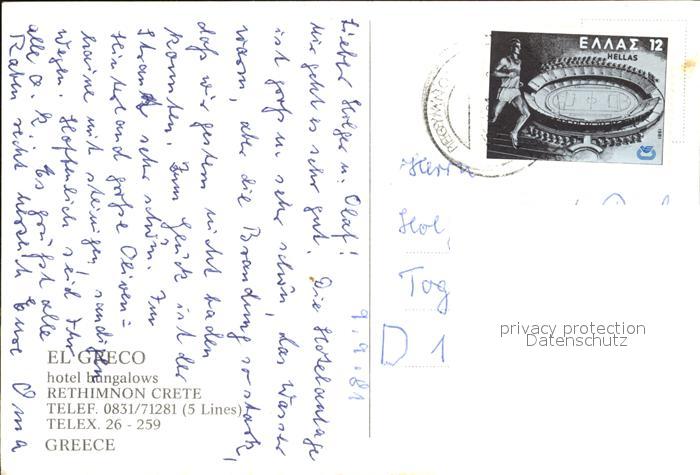 9.9.81
Lieber Holger u. Olaf!
Mir geht es sehr gut. Die Hotelanlage
ist groß u. sehr schön, das Wasser
warm, aber die Brandung so stark,
daß wir gestern nicht baden
konnten. Zum Glück ist der
Strand sehr schön. Im
Hinterland große Oliven=
haine mit steinigen, sandigen
Wegen. Hoffentlich seid Ihr
alle o.k. Es grüßt alle
Raben recht herzlich Eure Oma
EL GRECO
hotel bungalows
RETHIMNON CRETE
TELEF. 0831/71281 (5 Lines)
TELEX. 26 - 259
GREECE
ΕΛΛΑΣ 12
HELLAS
1981
Herrn
Hol
Tog
D 1
privacy protection
Datenschutz